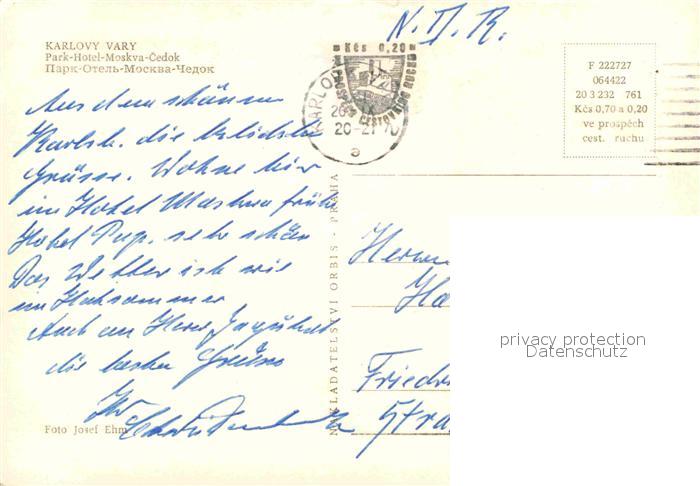 N. D. R.
KARLOVY VARY
Park-Hotel-Moskva-Čedok
Парк-Отель-Москва-Чедок
Kčs 0,20
VE PROSPĚCH CESTOVNÍHO RUCHU
KARLOVY
20-21
e
F 222727
064422
20 3 232 761
Kčs 0,70 a 0,20
ve prospěch
cest. ruchu
Aus dem schönen
Karlsb. die herzlichsten
Grüsse. Wohne hier
im Hotel Moskva früher
Hotel Pup. sehr schön
Das Wetter ist wie
im Hochsommer
Auch an Herrn
die besten Grüsse
Ihr
Foto Josef Ehm
NAKLADATELSTVÍ ORBIS - PRAHA
Herrn
Ha
Friedr
Stra
privacy protection
Datenschutz